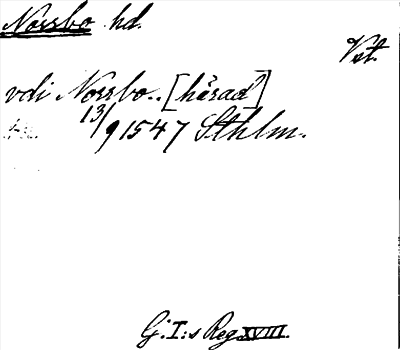 Norrbo hd.
Vst.
vdi Norrbo.. [härad]
13/9 1547 Sthlm.
G. I:s Reg XVIII.